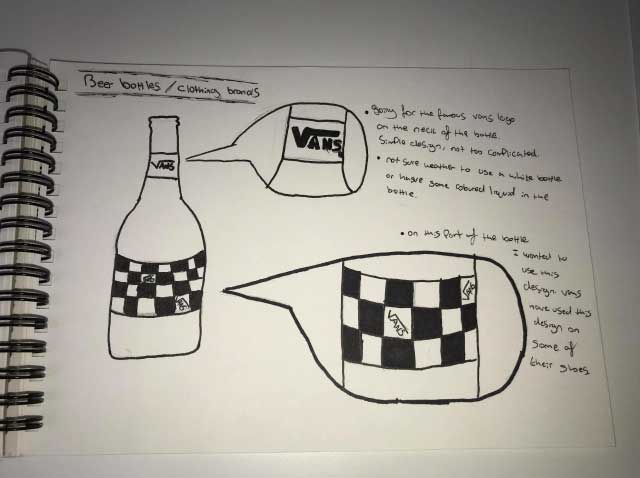 Beer bottles / clothing brands
VANS
VANS
• going for the famous vans logo
on the neck of the bottle.
Simple design, not too complicated.
• not sure weather to use a white bottle
or have some coloured liquid in the
bottle.
• on this part of the bottle
I wanted to
use this
design. vans
have used this
design on
some of
their shoes
VANS
VANS
VANS